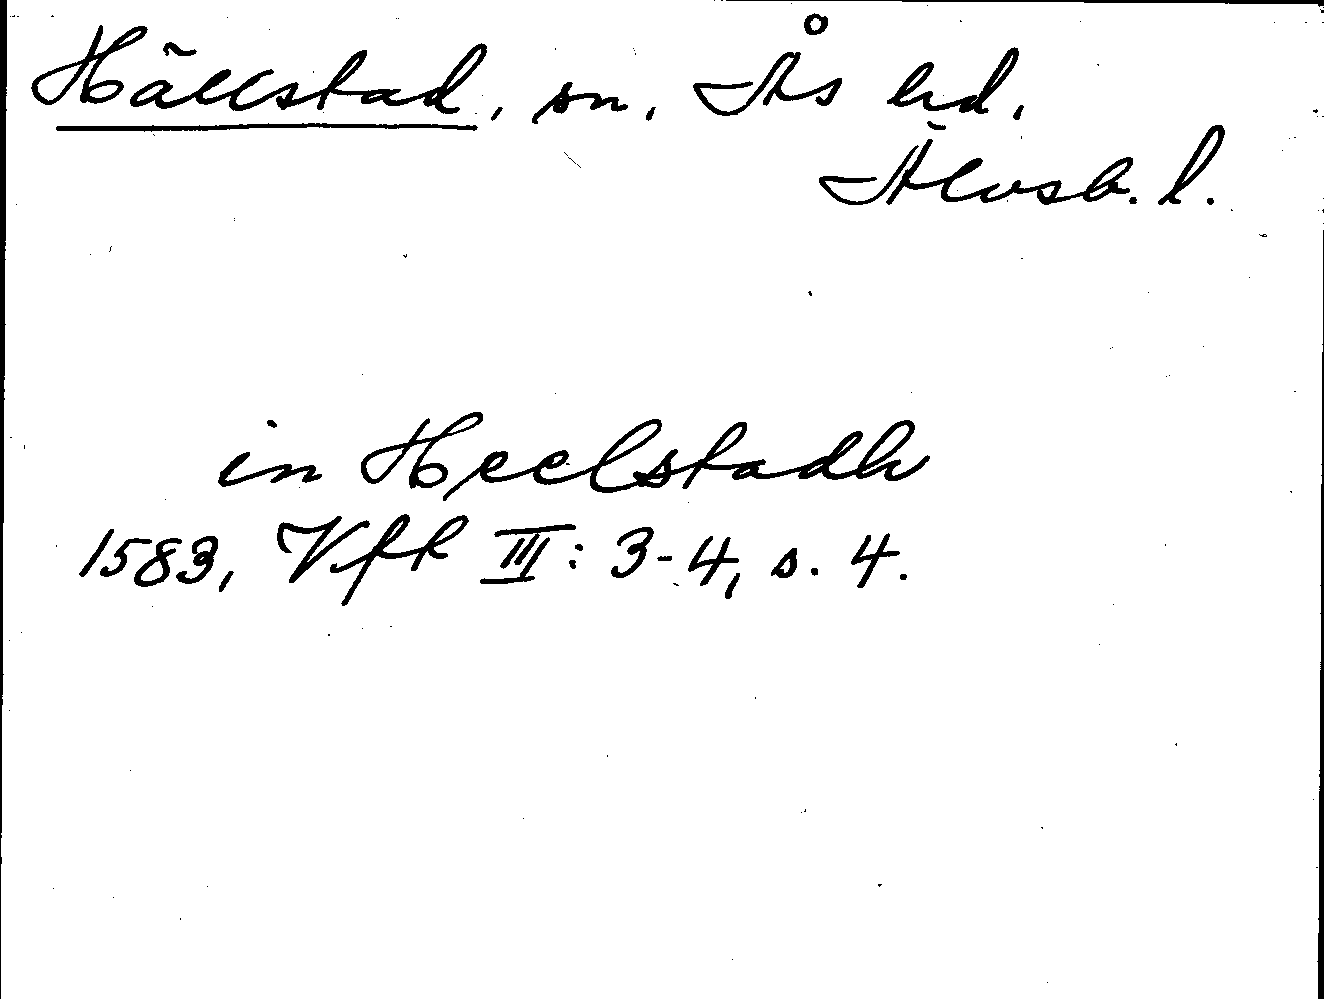 Hällstad, sn, Ås hd.
Älvsb. l.
in Heelstadh
1583, Vft III: 3-4, s. 4.